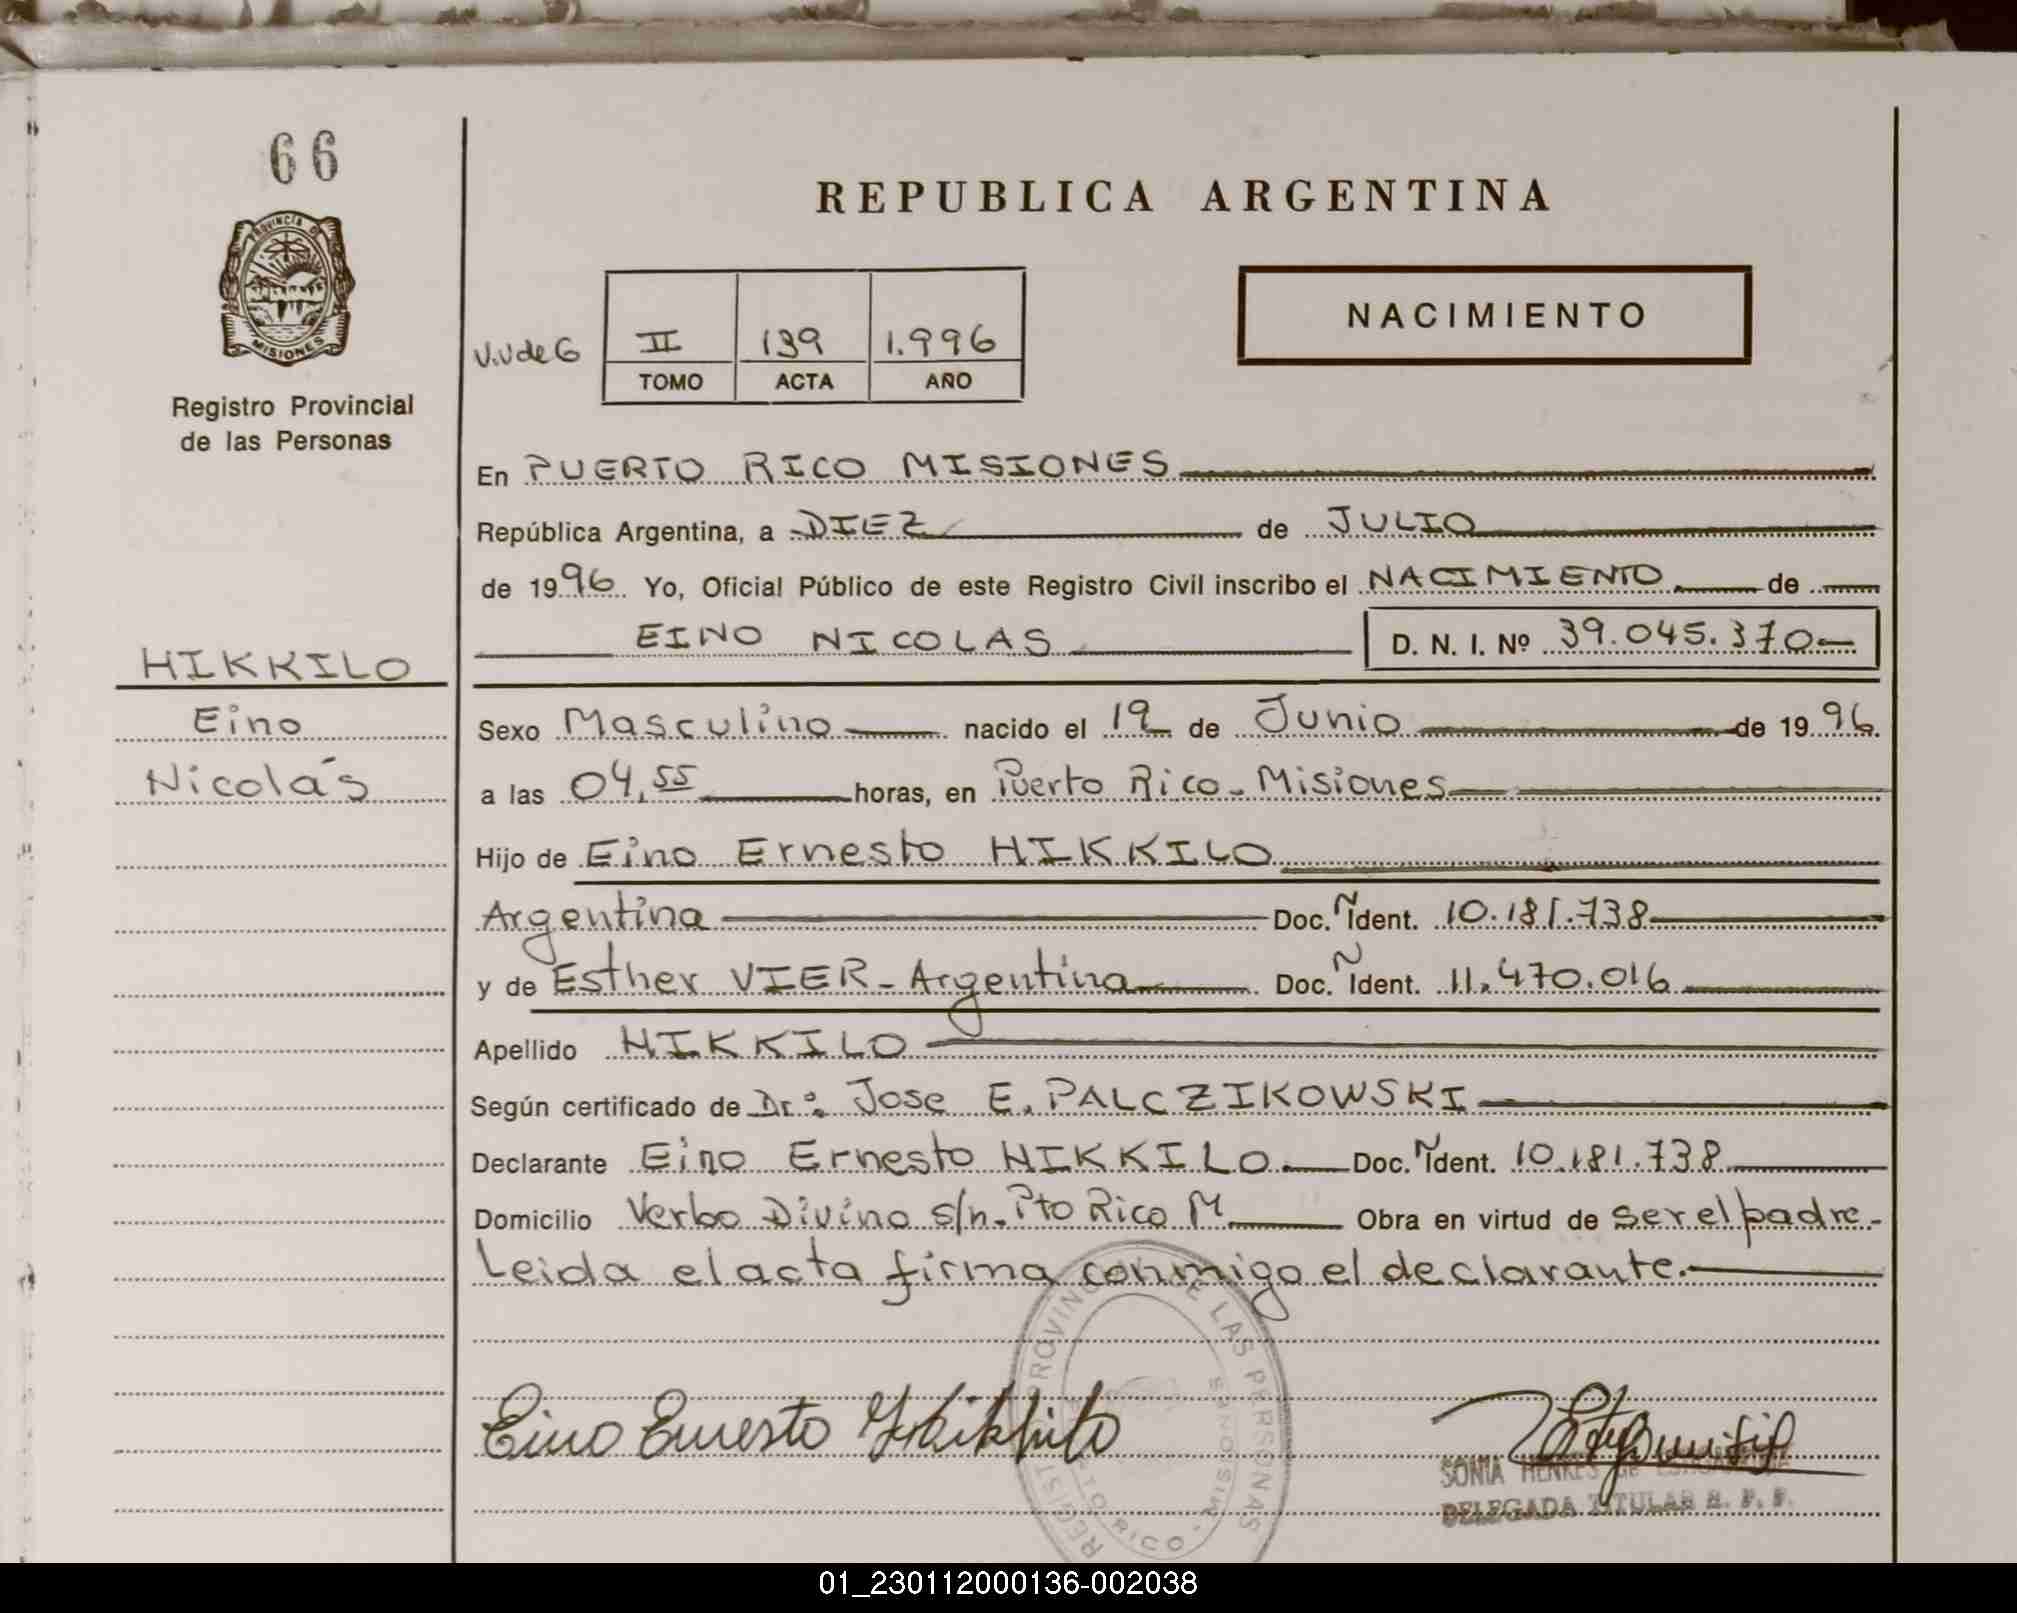 66
REPUBLICA ARGENTINA
PROVINCIA DE
MISIONES
NACIMIENTO
V.V de G
II 139 1.996
TOMO ACTA AÑO
Registro Provincial
de las Personas
En PUERTO RICO MISIONES
República Argentina, a DIEZ de JULIO
de 1996. Yo, Oficial Público de este Registro Civil inscribo el NACIMIENTO de
EINO NICOLAS D. N. I. Nº 39.045.370
HIKKILO
Eino
Nicolás
Sexo Masculino nacido el 19 de Junio de 1996.
a las 04,55 horas, en Puerto Rico - Misiones
Hijo de Eino Ernesto HIKKILO
Argentina Doc. Ñ Ident. 10.181.738
y de Esther VIER - Argentina Doc. Ñ Ident. 11.470.016
Apellido HIKKILO
Según certificado de Dr.: Jose E. PALCZIKOWSKI
Declarante Eino Ernesto HIKKILO Doc. Ñ Ident. 10.181.738
Domicilio Verbo Divino s/n. Pto Rico M Obra en virtud de ser el padre.-
Leida el acta firma conmigo el declarante.-
Eino Ernesto Hikkilo
SONIA HENKES de
DELEGADA TITULAR R. P. P.
PROVINC DE LAS PERSONAS
PTO RICO - MISIONES
01_230112000136-002038